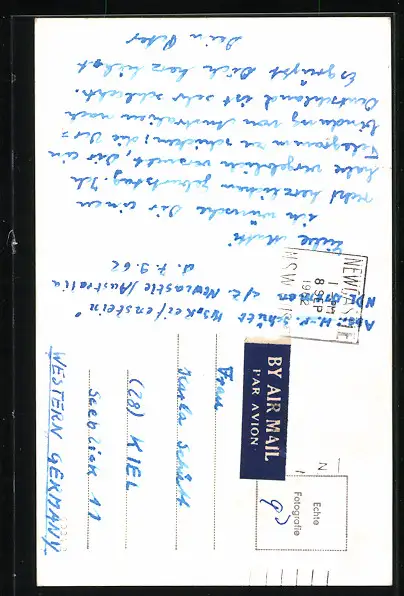 Abs.: H.-P. Schütt M/S "Reifenstein"
c/o Newcastle/Australia
d. 7.9.62
Liebe Mutti
ich wünsche Dir einen
recht herzlichen Geburtstag. Ich
habe vergeblich versucht, Dir ein
Telegramm zu schicken; die Ver=
bindung von Australien nach
Deutschland ist sehr schlecht.
Es grüßt Dich herzlichst
Dein Peter
NEWCASTLE
1-PM
8 SEP
1962
N.S.W.
BY AIR MAIL
PAR AVION
Echte
Fotografie
Frau
Karla Schütt
(28) KIEL
Seeblick 11
WESTERN GERMANY